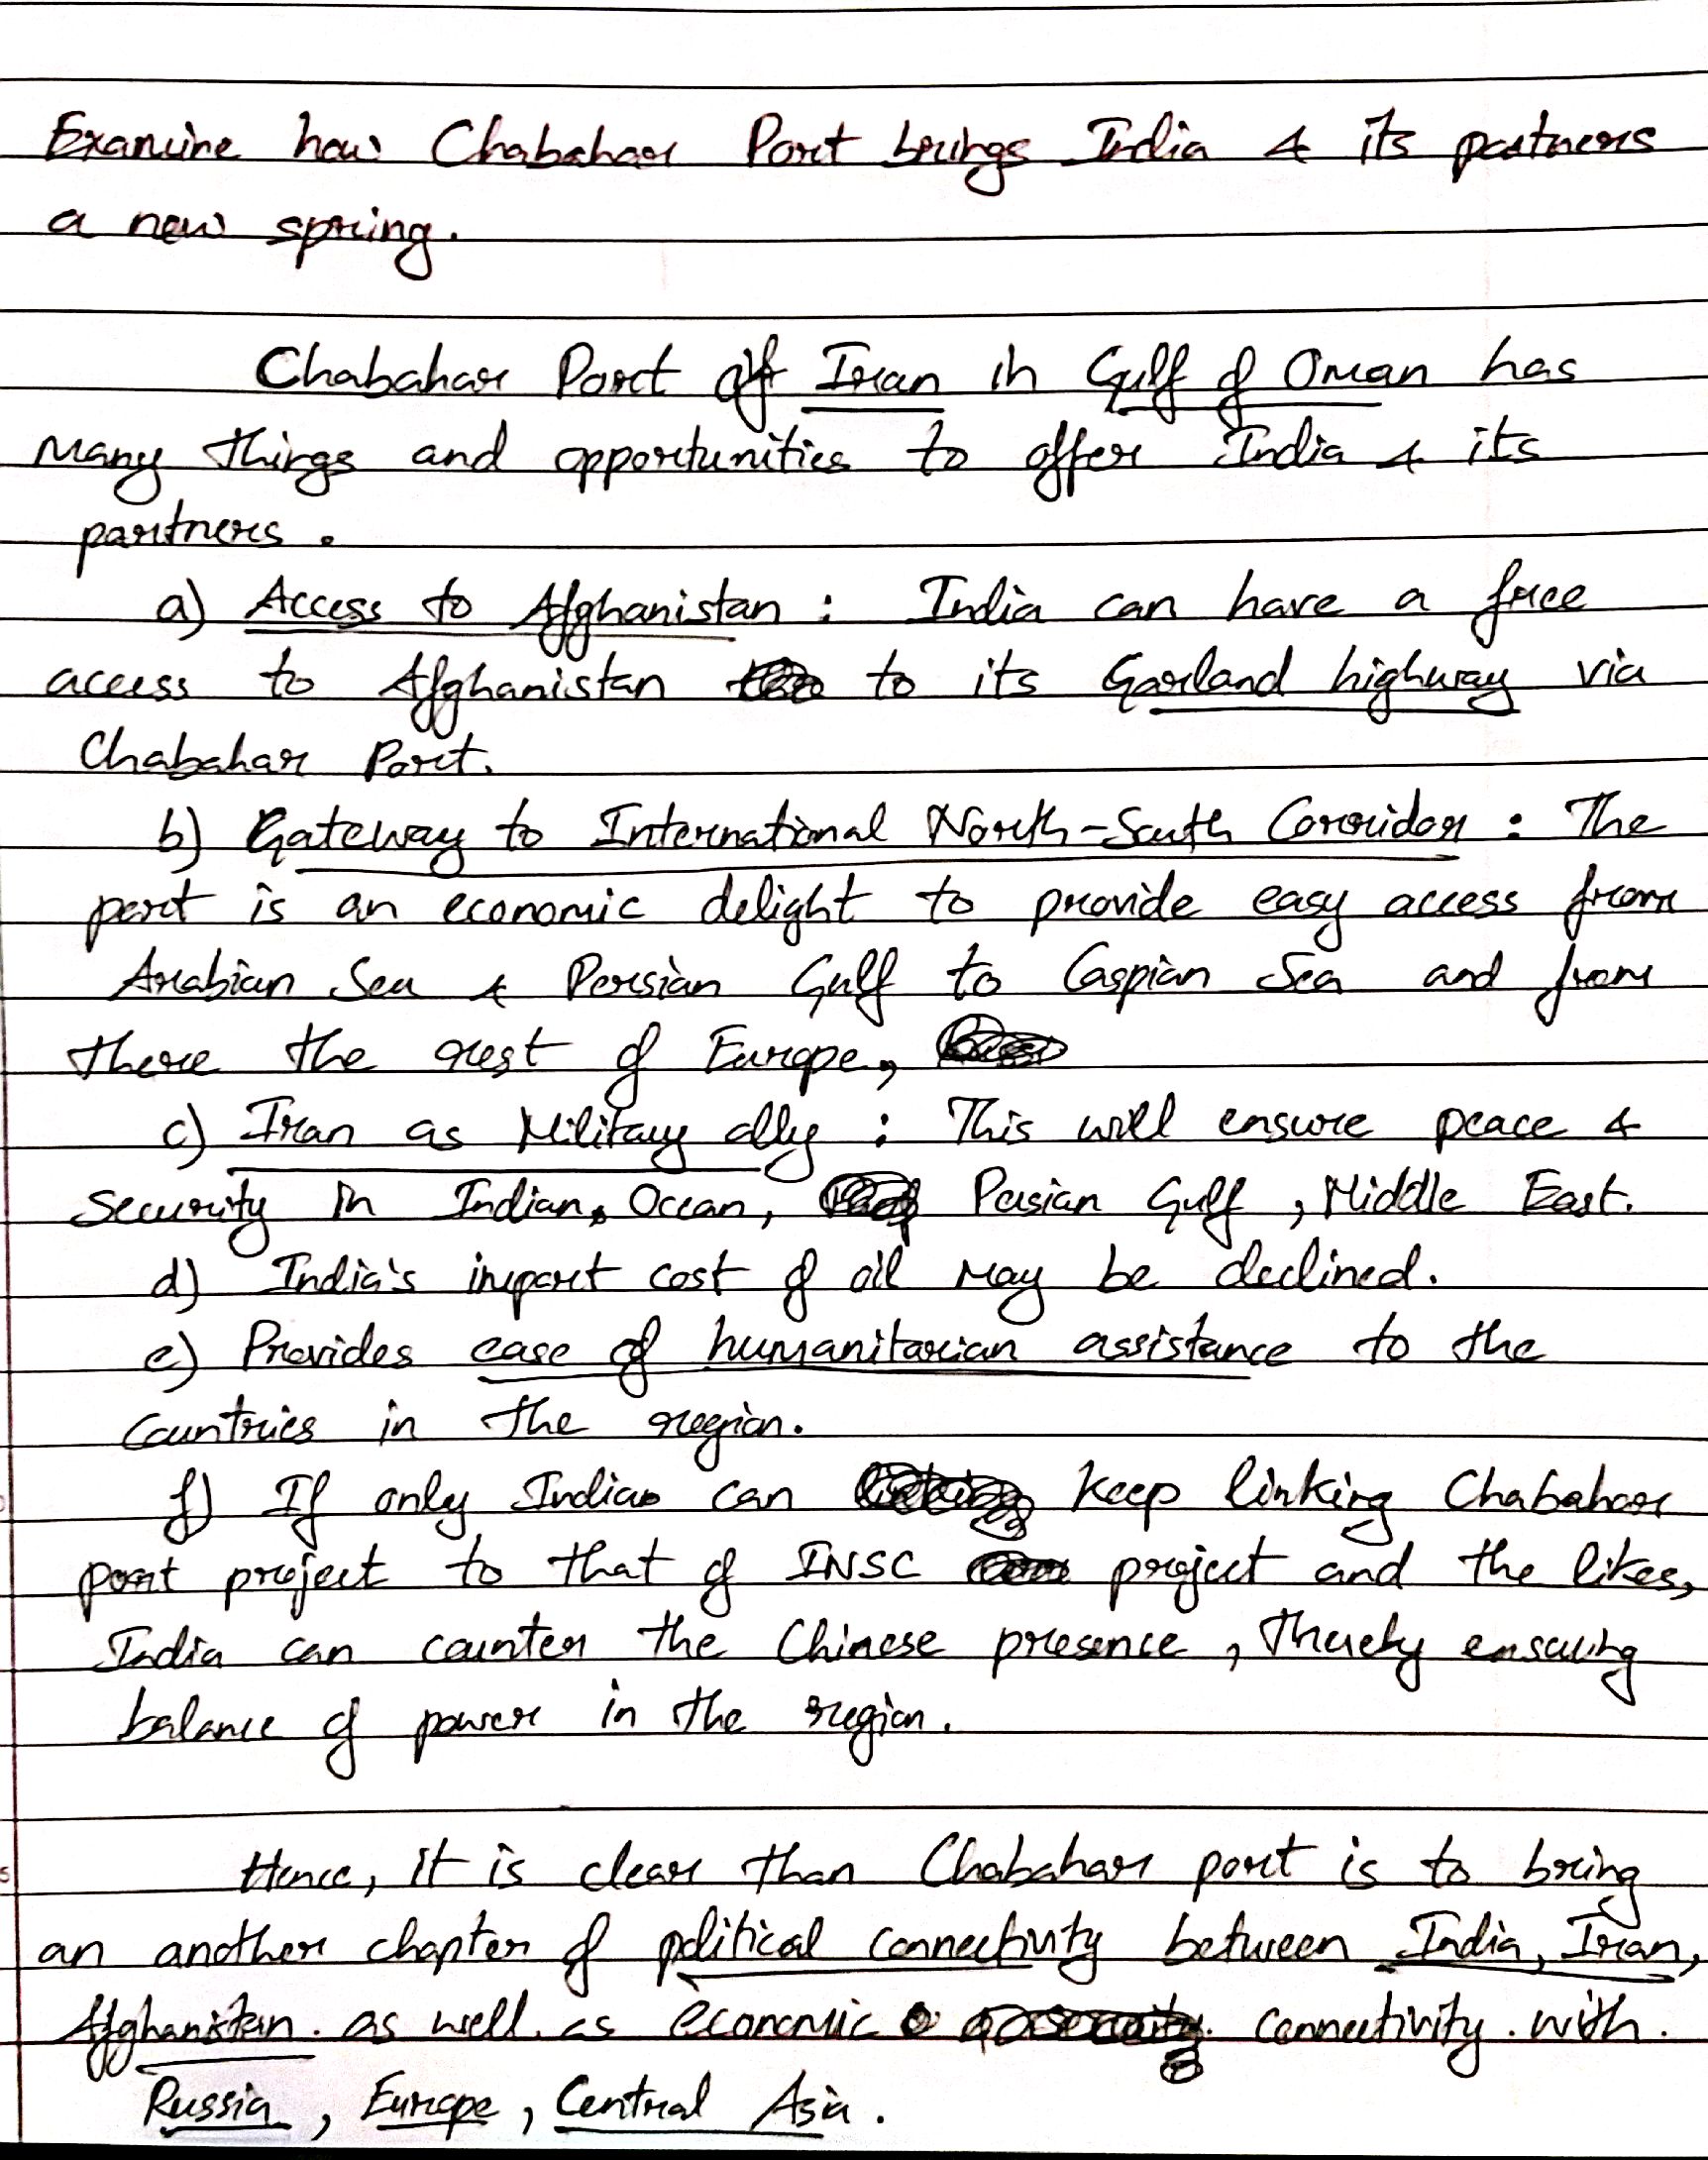 Examine how Chabahar Port brings India & its partners
a new spring.
Chabahar Port of Iran in Gulf of Oman has
many things and opportunities to offer India & its
partners.
a) Access to Afghanistan : India can have a free
access to Afghanistan to its Garland highway via
Chabahar Port.
b) Gateway to International North-South Corridor : The
port is an economic delight to provide easy access from
Arabian Sea & Persian Gulf to Caspian Sea and from
there the rest of Europe,
c) Iran as Military ally : This will ensure peace &
security in Indian Ocean, Persian Gulf, Middle East.
d) India's import cost of oil may be declined.
e) Provides ease of humanitarian assistance to the
countries in the region.
f) If only India can keep linking Chabahar
port project to that of INSC project and the likes,
India can counter the Chinese presence, thereby ensuring
balance of power in the region.
Hence, it is clear than Chabahar port is to bring
an another chapter of political connectivity between India, Iran,
Afghanistan as well as economic connectivity with
Russia, Europe, Central Asia.